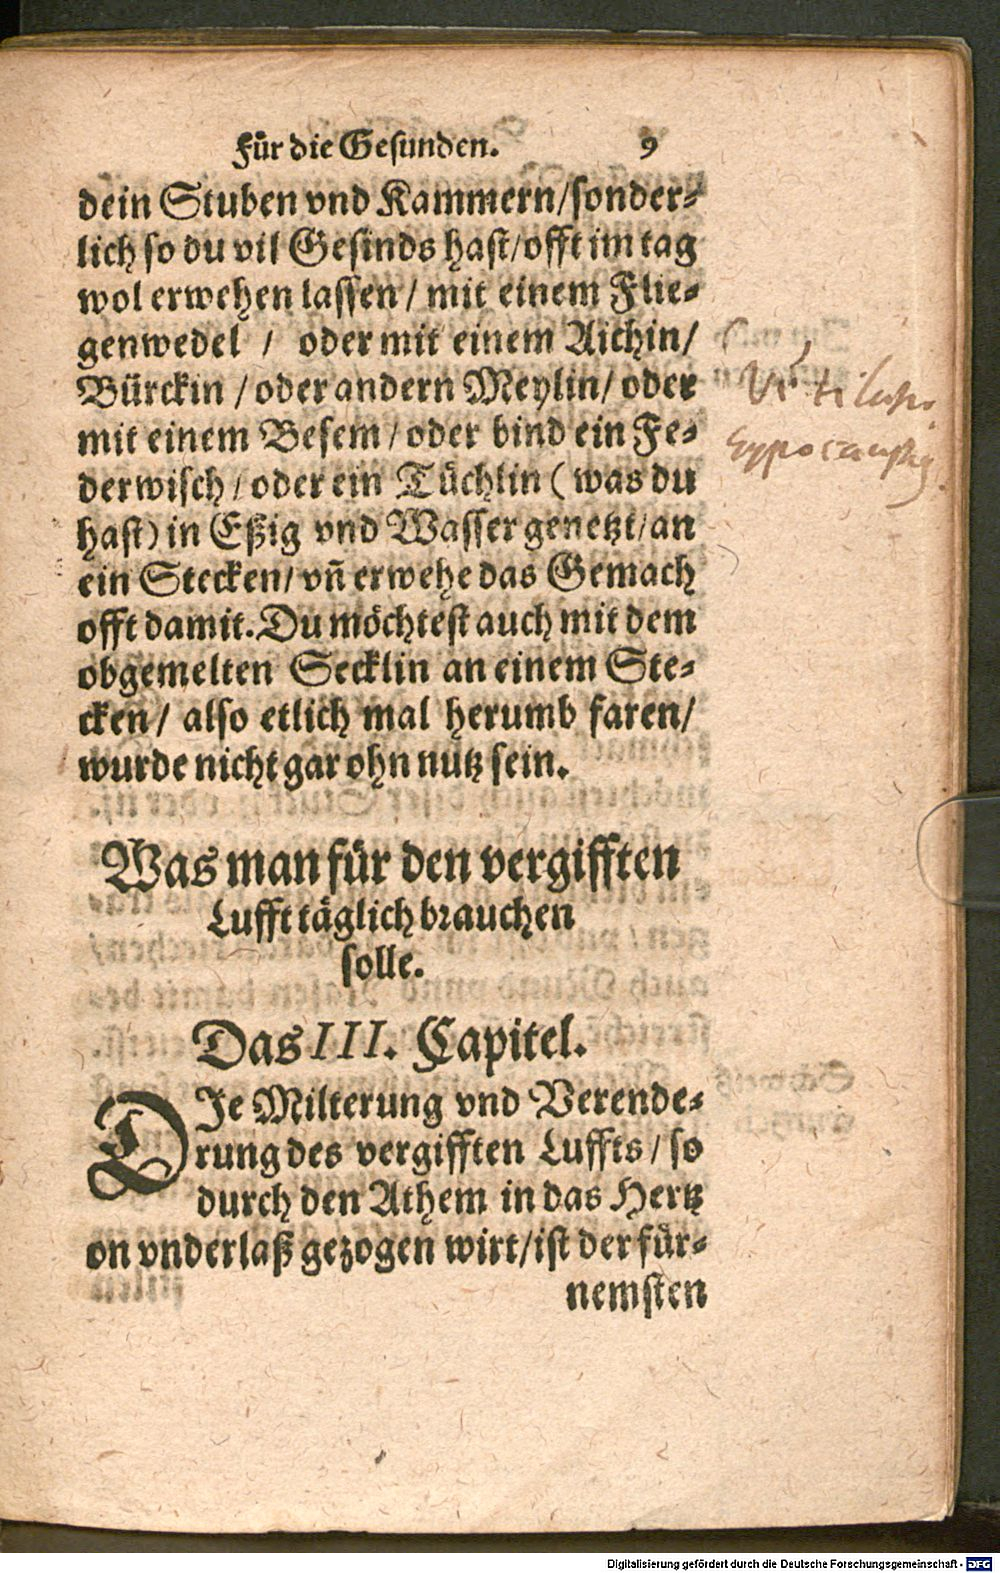 Für die Gesunden. 9
dein Stuben vnd Kammern/sonder-
lich so du vil Gesinds hast/offt im tag
wol erwehen lassen / mit einem Flie-
genwedel / oder mit einem Aichin/
Bürckin / oder andern Meylin/ oder
mit einem Besem / oder bind ein Fe-
derwisch / oder ein Tüchlin ( was du
hast) in Eßig vnd Wasser genetzt/an
ein Stecken/ vñ erwehe das Gemach
offt damit. Du möchtest auch mit dem
obgemelten Secklin an einem Ste-
cken/ also etlich mal herumb faren/
wurde nicht gar ohn nutz sein.
Was man für den vergifften
Lufft täglich brauchen
solle.
Das III. Capitel.
DIe Milterung vnd Verende-
rung des vergifften Luffts / so
durch den Athem in das Hertz
on vnderlaß gezogen wirt/ist der für-
nemsten
Digitalisierung gefördert durch die Deutsche Forschungsgemeinschaft - DFG